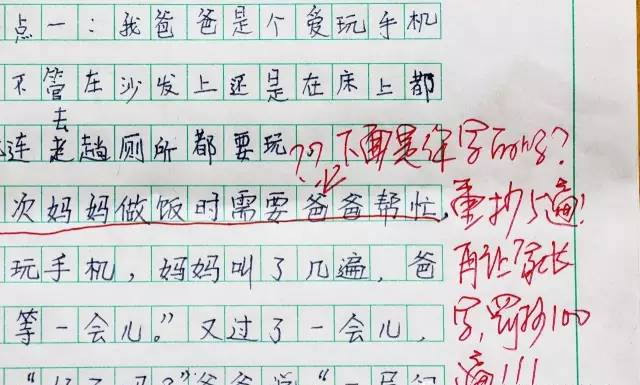 点一：我爸爸是个爱玩手机
不管在沙发上还是在床上都
去
连趟厕所都要玩
??下面是 字 吗?
次妈妈做饭时需要爸爸帮忙，
重抄5遍!
玩手机，妈妈叫了几遍，爸
再让 家长
等一会儿。”又过了一会儿，
字，罚抄100
遍!!!